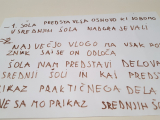 ŠOLA PREDSTAVLJA OSNOVO IN
V SREDNJIH ŠOLA NADGRAJEVALI
NAJ VEČJO VLOGO NA VSAK
ZNAK SAJ SE ON ODLOČA
ŠOLA NAM PREDSTAVI DELOVA
SREDNJI ŠOLI IN KAJ PREDST
PRIKAZ PRAKTIČNEGA DELA
NE SAMO PRIKAZ SREDNJIH ŠO